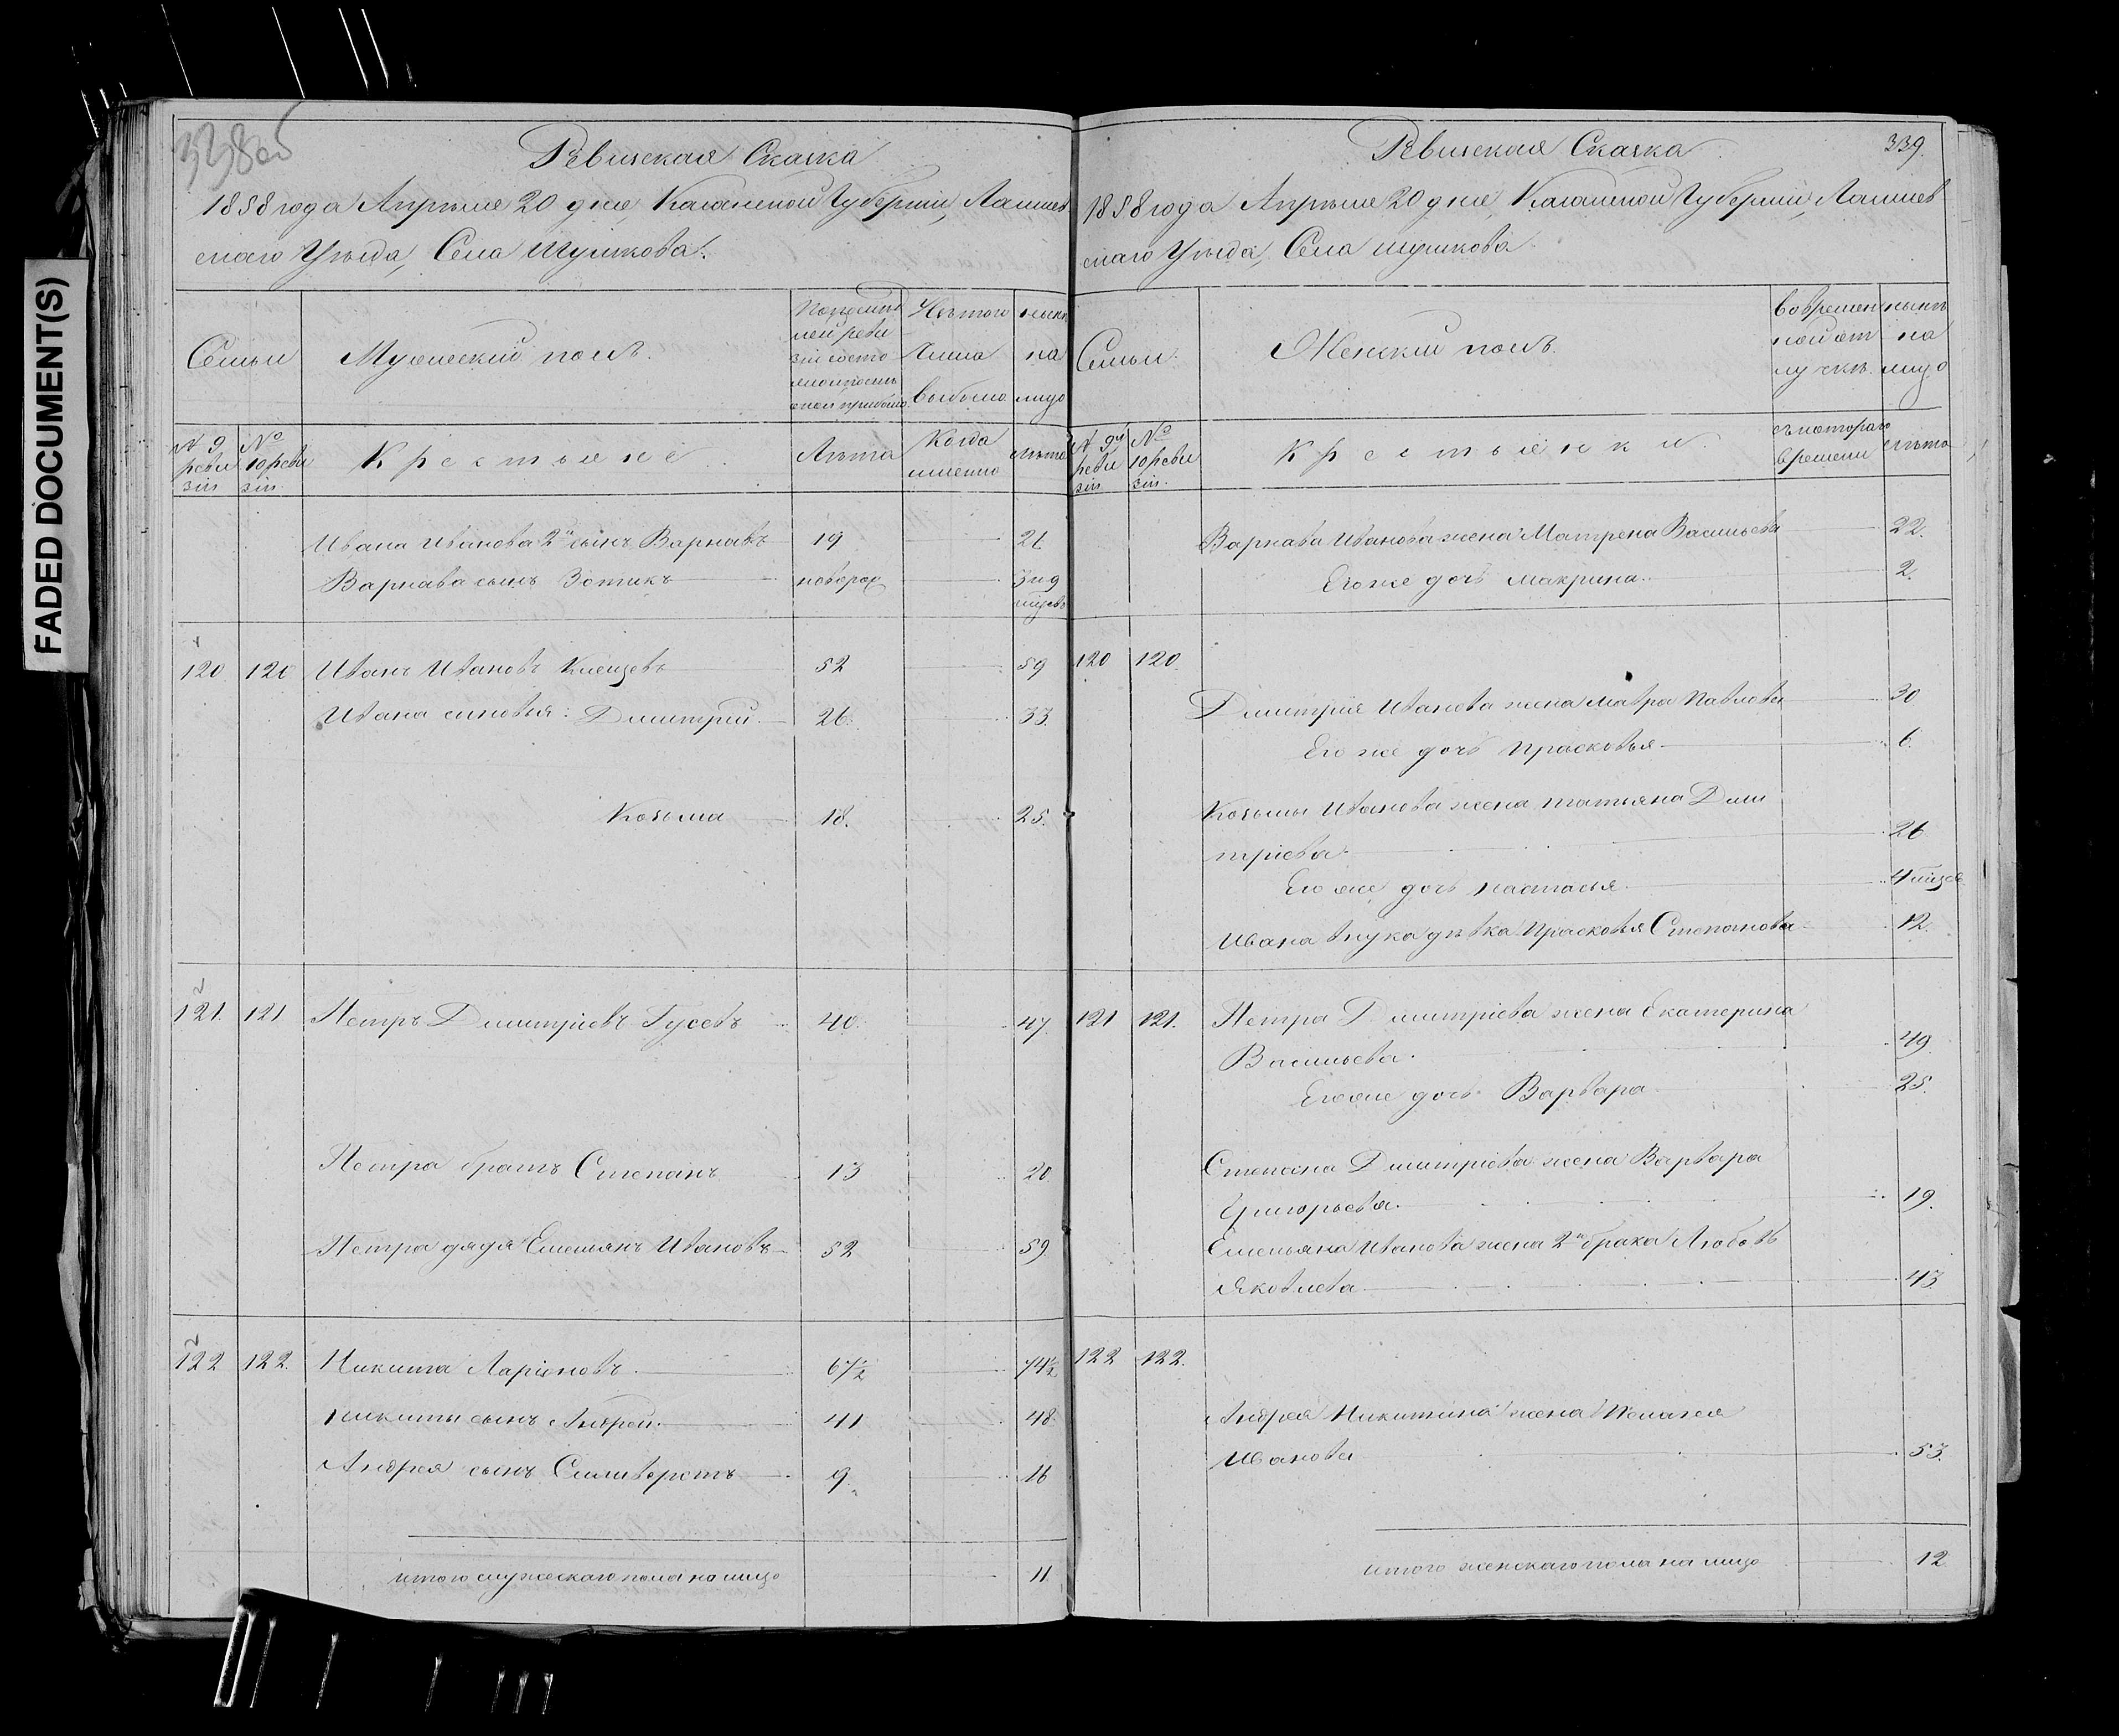 FADED DOCUMENT(S)
338 об
Ревизская Сказка
1858 года Апрѣля 20 дня Казанской Губерніи, Лаишев
скаго Уѣзда, Села Шушкова.
Семьи
Мужескій полъ.
По послѣд
ней реви
зіи состо
яло и послѣ
оной прибыло
Изъ того
числа
выбыло
нынѣ
на
лицо
№ 9
реви
зіи
№
10 реви
зіи
Крестьяне
Лѣта
Когда
именно
лѣта
Ивана Иванова 2й сынъ Варнавъ 19 21
Варнава сынъ Зотикъ новорож 3 и 9
мцевъ
120 120 Иванъ Ивановъ Клещевъ 52 59
Ивана сыновья: Дмитрій 26 33
Козьма 18. 25.
121. 121 Петръ Дмитріевъ Гусевъ 40. 47.
Петра братъ Степанъ 13 20
Петра дядя Емельянъ Ивановъ 52 59
122 122. Никита Ларіоновъ 67½ 74½
Никиты сынъ Андрей. 41 48
Андрея сынъ Силиверстъ 9. 16
итого мужескаго пола на лицо 11.
339.
Ревизская Сказка
1858 года Апрѣля 20 дня, Казанской Губерніи, Лаишев
скаго Уѣзда, Села Шушкова
Семьи.
Женскій полъ.
во времен
ной от
лучкѣ.
нынѣ
на
лицо
№ 9й
реви
зіи
№
10 реви
зіи.
Крестьянки.
съ котораго
времени
лѣта
Варнава Иванова жена Матрена Васильева 22.
Его же дочь Макрина. 2.
120 120.
Дмитрія Иванова жена Мавра Павлова 30
Его же дочь Прасковья 6.
Козьмы Иванова жена Татьяна Дми
тріева. 26
Его же дочь Настасья 4 мцсв
Ивана внука дѣвка Прасковья Степанова 12.
121 121. Петра Дмитріева жена Екатерина
Васильева. 49.
Его же дочь Варвара 25.
Степана Дмитріева жена Варвара
Григорьева. 19.
Емельяна Иванова жена 2го брака Любовь
Яковлева 43.
122 122.
Андрея Никитина жена Пелагея
Иванова 53.
итого женскаго пола на лицо 12